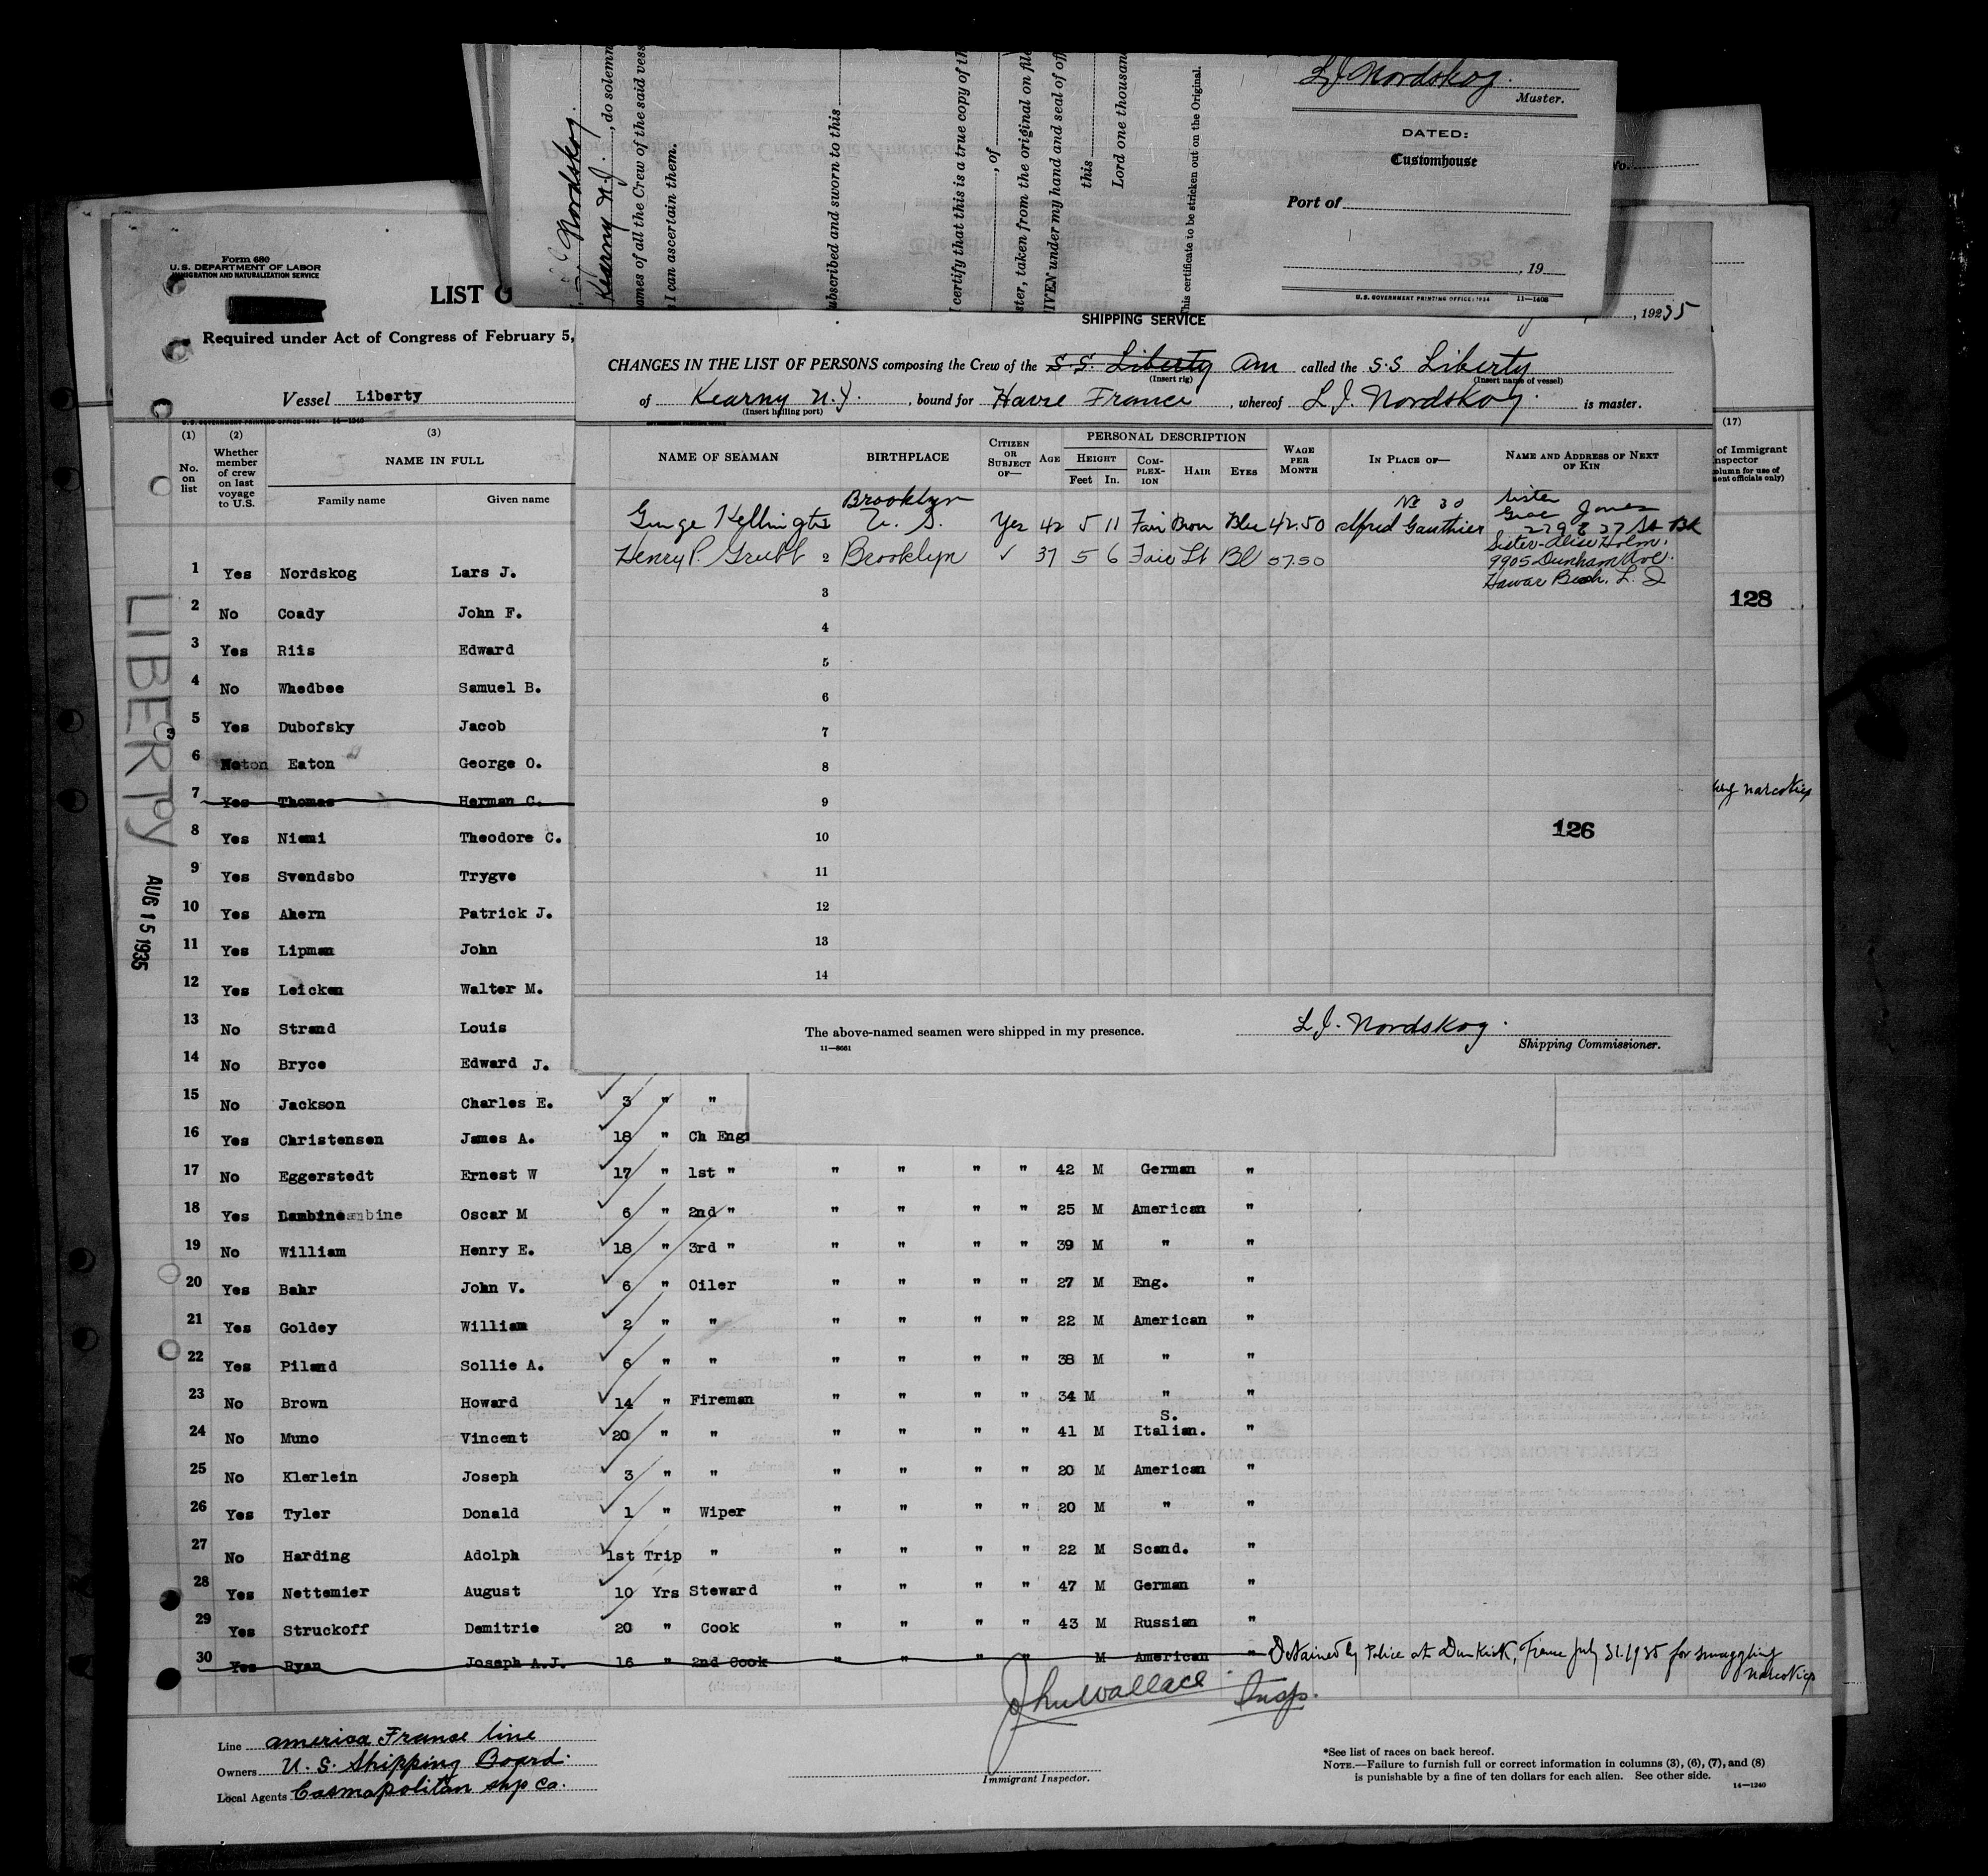 L J Nordskog.
Master.
DATED:
Customhouse
Port of
, 19
U. S. GOVERNMENT PRINTING OFFICE: 1934 11—1408
Nordskog.
Kearny N.J. , do solemn
ames of all the Crew of the said vess
I can ascertain them.
ubscribed and sworn to this
certify that this is a true copy of th
, of
ster, taken from the original on file
IVEN under my hand and seal of of
this
Lord one thousan
his certificate to be stricken out on the Original.
No.
Form 680
U. S. DEPARTMENT OF LABOR
IMMIGRATION AND NATURALIZATION SERVICE
LIST O
Required under Act of Congress of February 5,
Vessel Liberty
U. S. GOVERNMENT PRINTING OFFICE: 1934 14—1240
SHIPPING SERVICE
, 19235
CHANGES IN THE LIST OF PERSONS composing the Crew of the S.S. Liberty Am called the S.S Liberty
(Insert rig) (Insert name of vessel)
of Kearny N.J. , bound for Havre France , whereof L J. Nordskog. is master.
(Insert hailing port)
NAME OF SEAMAN BIRTHPLACE CITIZEN OR SUBJECT OF— AGE PERSONAL DESCRIPTION HEIGHT Feet In. COMPLEXION HAIR EYES WAGE PER MONTH IN PLACE OF— NAME AND ADDRESS OF NEXT OF KIN
Brooklyn No 30 Sister
George U. S. Yes 42 5 11 Fair Brow Blue 42.50 Alfred Gauthier Grac Jones
229 E 27 St Bk
Henry P. Grubb 2 Brooklyn ✓ 37 5 6 Fair Lt Bl 57.50 Sister-Alise Holm.
9905 Dunham Ave.
Beach. L. I
3
4
5
6
7
8
9
10
11
12
13
14
126
The above-named seamen were shipped in my presence.
11—8661
L J. Nordskog.
Shipping Commissioner.
(17)
of Immigrant
nspector
olumn for use of
ment officials only)
128
narcotics
LIBERTY
AUG 15 1935
(1) (2) (3)
No. on list
Whether member of crew on last voyage to U.S.
NAME IN FULL
Family name Given name
1 Yes Nordskog Lars J.
2 No Coady John F.
3 Yes Riis Edward
4 No Whedbee Samuel B.
5 Yes Dubofsky Jacob
6 Eaton George O.
7 Yes Thomas Herman C.
8 Yes Niemi Theodore C.
9 Yes Svendsbo Trygve
10 Yes Ahern Patrick J.
11 Yes Lipman John
12 Yes Leicken Walter M.
13 No Strand Louis
14 No Bryce Edward J.
15 No Jackson Charles E. 3 " "
16 Yes Christensen James A. 18 " Ch Eng
17 No Eggerstedt Ernest W 17 " 1st " " " " " 42 M German "
18 Yes Lambine Oscar M 6 " 2nd " " " " " 25 M American "
19 No William Henry E. 18 " 3rd " " " " " 39 M " "
20 Yes Bahr John V. 6 " Oiler " " " " 27 M Eng. "
21 Yes Goldey William 2 " " " " " " 22 M American "
22 Yes Piland Sollie A. 6 " " " " " " 38 M " "
23 No Brown Howard 14 " Fireman " " " " 34 M " "
24 No Muno Vincent 20 " " " " " " 41 M S. Italian. "
25 No Klerlein Joseph 3 " " " " " " 20 M American "
26 Yes Tyler Donald 1 " Wiper " " " " 20 M " "
27 No Harding Adolph 1st Trip " " " " " 22 M Scand. "
28 Yes Nettemier August 10 Yrs Steward " " " " 47 M German "
29 Yes Struckoff Demitrie 20 " Cook " " " " 43 M Russian "
30 Yes Ryan Joseph A.J. 16 " 2nd Cook " " " " M American " Detained by Police at Dunkirk, France July 31.1935 for smuggling
narcotics
John Wallace Insp.
Immigrant Inspector.
Line america Franse line
Owners U. S. Shipping Board.
Local Agents Cosmopolitan shp co.
*See list of races on back hereof.
NOTE.—Failure to furnish full or correct information in columns (3), (6), (7), and (8)
is punishable by a fine of ten dollars for each alien. See other side.
14—1240